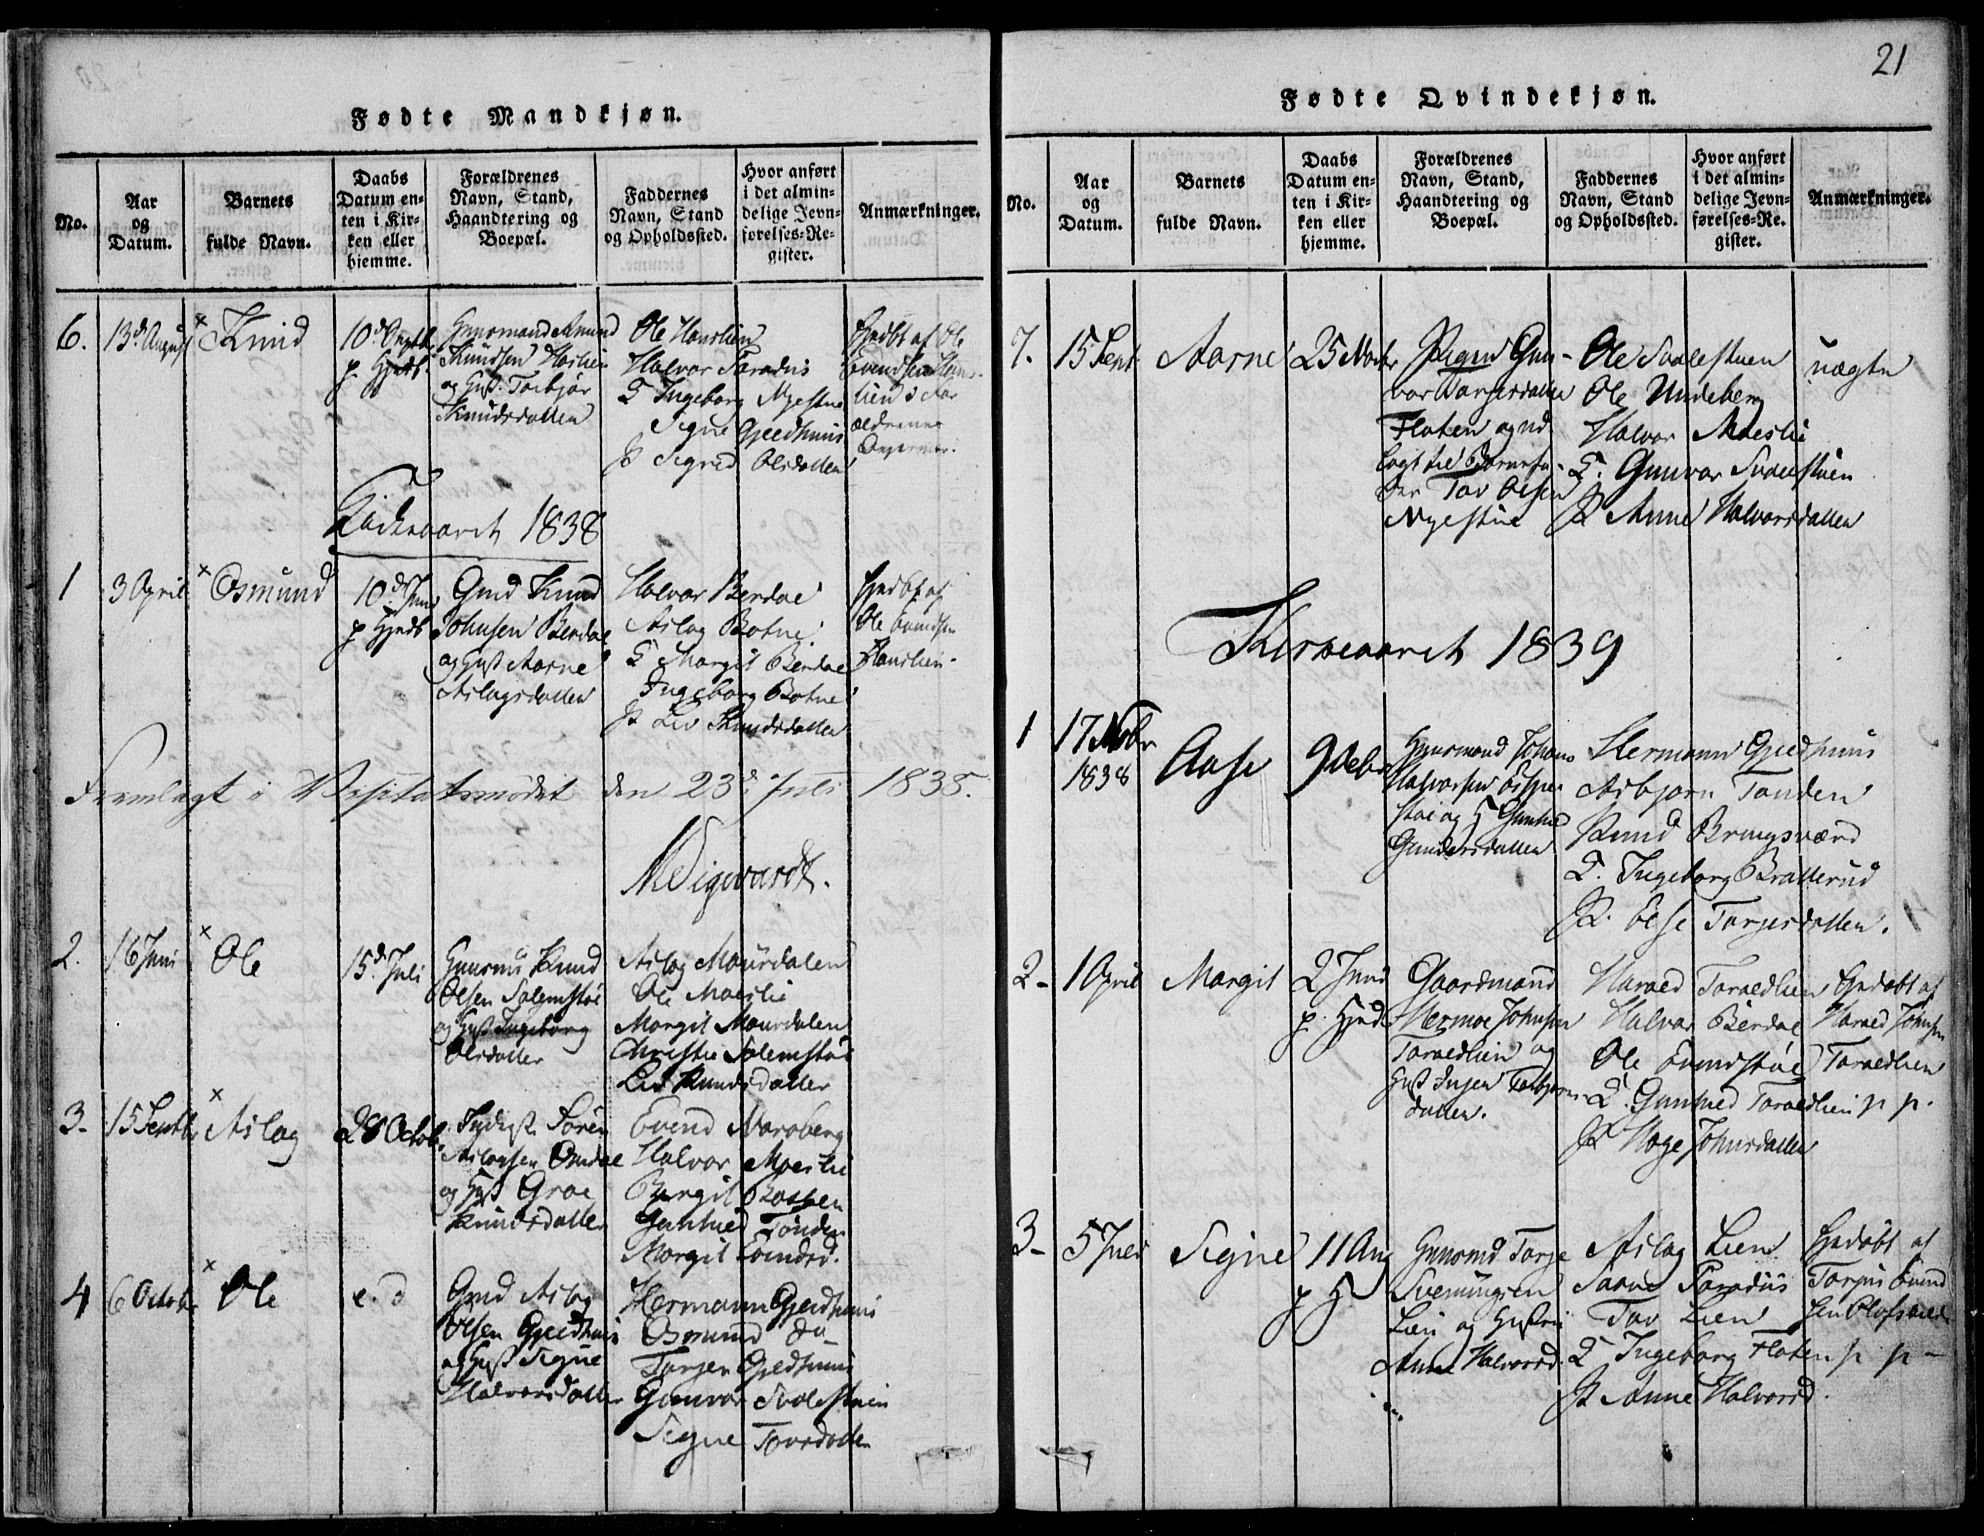 Fødte Mandkjøn.
No.
Aar
og
Datum.
Barnets
fulde Navn.
Daabs
Datum en-
ten i Kir-
ken eller
hjemme.
Forældrenes
Navn, Stand,
Haandtering og
Boepæl.
Faddernes
Navn, Stand
og Opholdssted.
Hvor anført
i det almin-
delige Jevn-
førelses-Re-
gister.
Anmærkninger.
6.
13d August
Knud
p Hjedb.
Gaarmand Amund
Knudsen Haslien
og Hust. Torbjør
Knudsdatter
Ole Hauslien
Halvor Paradiis
Q Ingeborg Nyestue
Signe Gjeedhuus
P Sigrid Olsdatter
Hjedøbt af Ole
Evendsen
Kirkeaaret 1838
1
3 April
Osmund
10d Juni
p Hjedb
Gmd Knud
Johnsen Berdae
og Hust Aasne
Aslagsdatter
Halvor Berdae
Aslag Botne
Q Margit Berdae
Ingeborg Botne
P Liv Knudsdatter
Hjedøbt af
Ole Evendsen
Hauslien
Fremlagt i Visitatsmødet den 23d Juli 1838.
2.
16 Juni
Ole
15d Juli
Knud
Olsen Solemstøe
og Hust Ingeborg
Olsdatter
Aslag Maurdalen
Ole Moeslie
Margit Maurdalen
Christie Solemstøe
Liv Knudsdatter
3-
15 Septbr
Aslag
28 Octob.
Søren
Aslagsen Omdae
og Hust Groe
Knudsdatter
Evend Naroberg
Halvor Moeslie
Bergit Baasen
Gunhild Tønden
Margit Evendsd.
4
6 Octobr
Ole
e. d
Gmd Aslag
Olsen Gjeedhuus
og Hust Signe
Halvorsdatter
Hermann Gjeedhuus
Osmund do
Torjer Gjedhuus
Gunvor Svalestuen
Signe Tovsdatter
21
Fødte Qvindekjøn.
No.
Aar
og
Datum.
Barnets
fulde Navn.
Daabs
Datum en-
ten i Kir-
ken eller
hjemme.
Forældrenes
Navn, Stand,
Haandtering og
Boepæl.
Faddernes
Navn, Stand
og Opholdssted.
Hvor anført
i det almin-
delige Jevn-
førelses-Re-
gister.
Anmærkninger.
7.
15 Sept
Aasne
25 Novbr
Pigen Gun-
vor Torgersdatter
Floten og ud-
lagt til Barnefa-
der Tov Olsen
Nyestue
Ole Svalestuen
Ole Undeberg
Halvor Moeslie
Q. Gunvor Svalestuen
P Anne Halvorsdatter
uægte
Kirkeaaret 1839
1
17 Novbr
1838
Aase
9 Debr
Gaarmand Johans
Halvorsen
og H Gunhild
Gundersdatter
Hermann Gjeedhuus
Asbjørn Tønden
Knud Bringsværd
Q. Ingeborg Bratterud
P. Else Torjersdatter.
2-
1 April
Margit
2 Juni
p. Hjed.
Gaardmand
Hermoe Johnsen
Tarvedlien og
Hust Inger Torbjørns-
datter.
Harved Tarvedlien
Halvor Berdae
Ole Evendstøe
Q. Gunhild Tarvedlien
P Hoge Johnsdatter
Hjedøbt af
Harved Johnsen
Tarvedlien
p p.
3-
5 Juli
Signe
11 Aug
p H
Torje
Svenungsen
Lien og Hustru
Anne Halvorsd.
Aslag Lien
Aasne Paradiis
Tov Lien
Q Ingeborg Floten
P Anne Halvorsd.
Hjedøbt af
Torjus Evend
sen
p p -